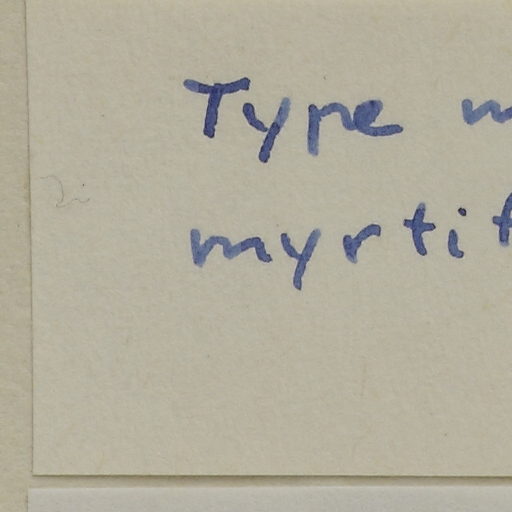 Type
myrtif